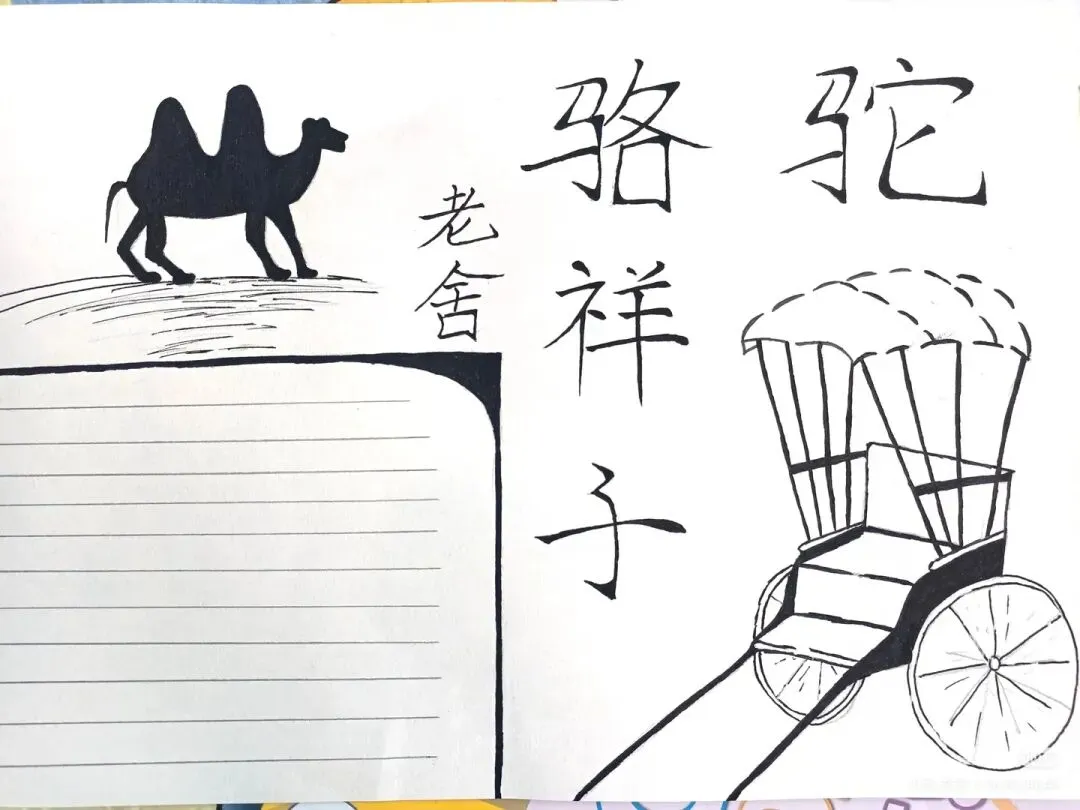 骆驼
祥
子
老
舍